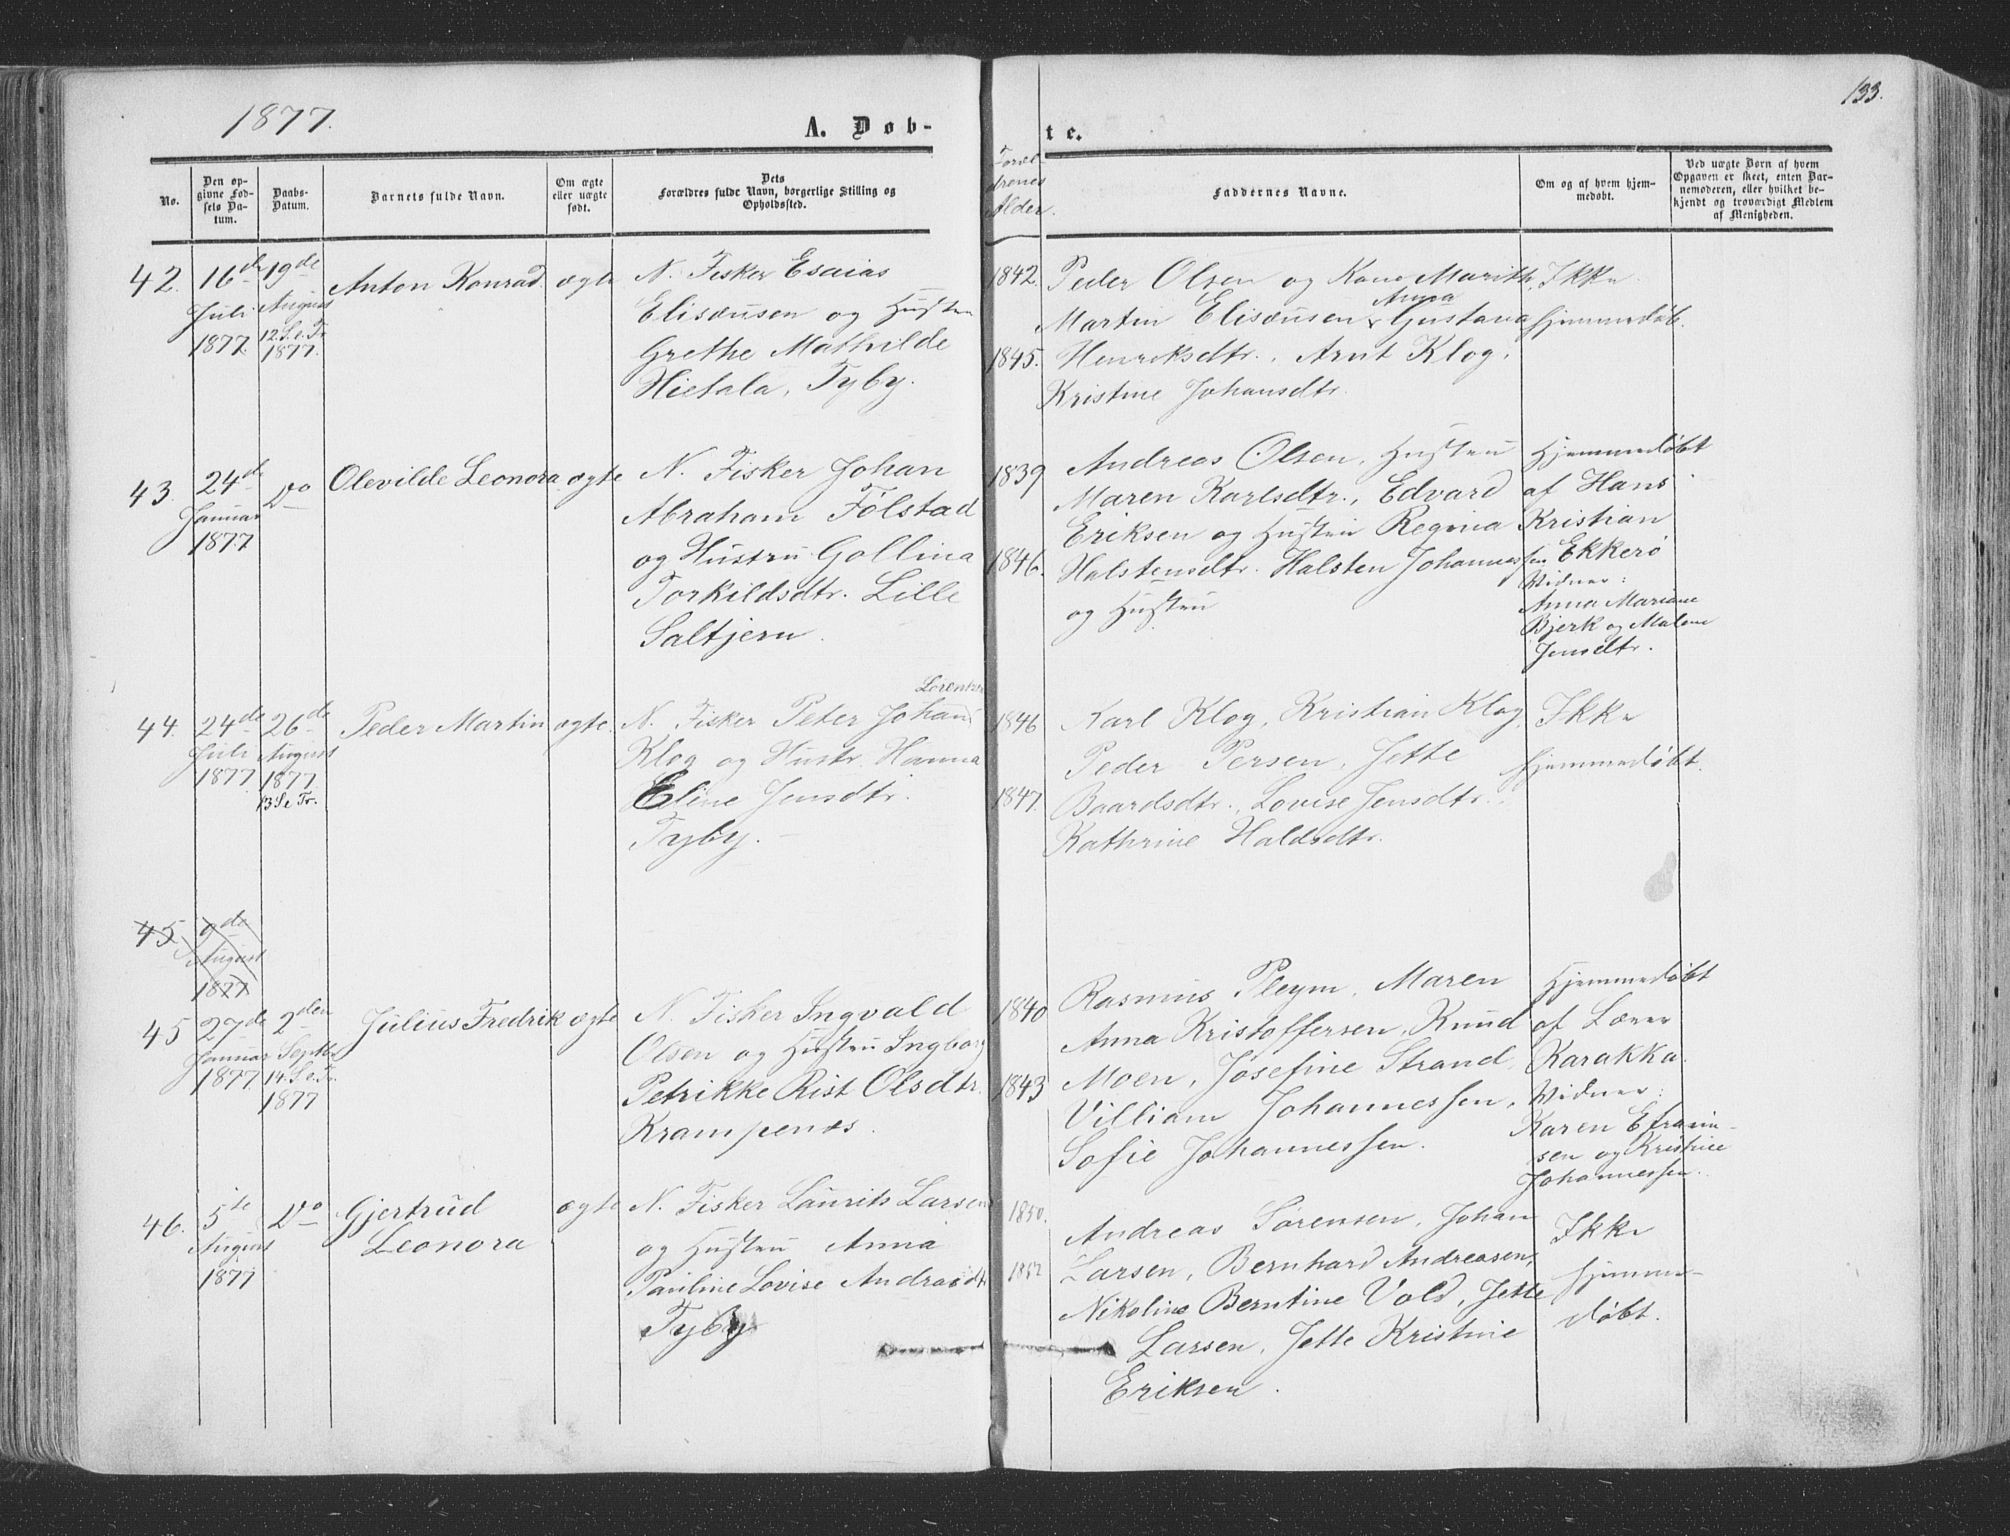 1877.
A. Døb-
te.
133.
No.
Den op-
givne Fød-
sels Da-
tum.
Daabs-
Datum.
Barnets fulde Navn.
Om ægte
eller uægte
født.
Dets
Forældres fulde Navn, borgerlige Stilling og
Opholdssted.
Foræl-
drenes
Alder.
Faddernes Navne.
Om og af hvem hjem-
medøbt.
Ved uægte Børn af hvem
Opgaven er skeet, enten Bar-
nemoderen, eller hvilket be-
kjendt og troværdigt Medlem
af Menigheden.
42.
16de
Juli
1877.
19de
August
12 S. e. Tr.
1877.
Anton Konrad
ægte
N. Fisker Esaias
Elisæusen og Hustru
Grethe Mathilde
Hietala, Tyby.
1842.
1845.
Peder Olsen og Kone Marith,
Anna
Martin Elisæusen & Gustava
Henriksdtr., Arnt Klog,
Kristine Johansdtr.
Ikke
hjemmedøb.
43.
24de
Januar
1877
Do
Olevilde Leonora
ægte
N. Fisker Johan
Abraham Følstad
og Hustru Gollina
Torkildsdtr. Lille
Saltjern.
1839
1846.
Andreas Olsen, Hustru
Maren Karlsdtr., Edvard
Eriksen og Hustru Regina
Halstensdtr. Halsten Johannessen
og Hustru
Hjemmedøbt
af Hans
Kristian
Ekkerö
Vidner:
Anna Mariane
Bjerk og Malene
Jensdtr.
44.
24de
Juli
1877
26de
August
1877
13 S e Tr.
Peder Martin
ægte.
Lorentzen
N. Fisker Peter Johan
Klog og Hustr. Hanna
Eline Jensdtr.
Tyby.
1846
1847.
Karl Klog, Kristian Klog,
Peder Persen, Jette
Baardsdtr., Lovise Jensdtr.,
Kathrine Haldsdtr.
Ikke
hjemmedøbt.
45
9de
August
1877
45
27de
Januar
1877.
2den
Septbr
14. S. e. Tr.
1877
Julius Fredrik
ægte
N. Fisker Ingvald
Olsen og Hustru Ingborg
Petrikke Rist Olsdtr.
Krampenæs.
1840
1843
Rasmus Pleym, Maren
Anna Kristoffersen, Knud
Moen, Josefine Strand,
Villiam Johannessen,
Sofie Johannessen.
Hjemmedøbt
af Lærer
Karakka.
Vidner:
Karen Efraim-
sen og Kristine
Johannessen.
46.
5te
August
1877
Do
Gjertrud
Leonora
ægte
N. Fisker Laurits Larsen
og Hustru Anna
Pauline Lovise Andreasdtr
Tyby
1850.
1852
Andreas Sørensen, Johan
Larsen, Bernhard Andreasen,
Nikoline Berntine Vold, Jette
Larsen, Jette Kristine
Eriksen.
Ikke
hjemme-
døbt.